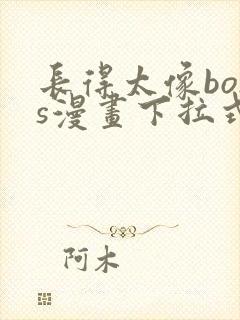 長得太像bo
s漫畫下拉式
阿木